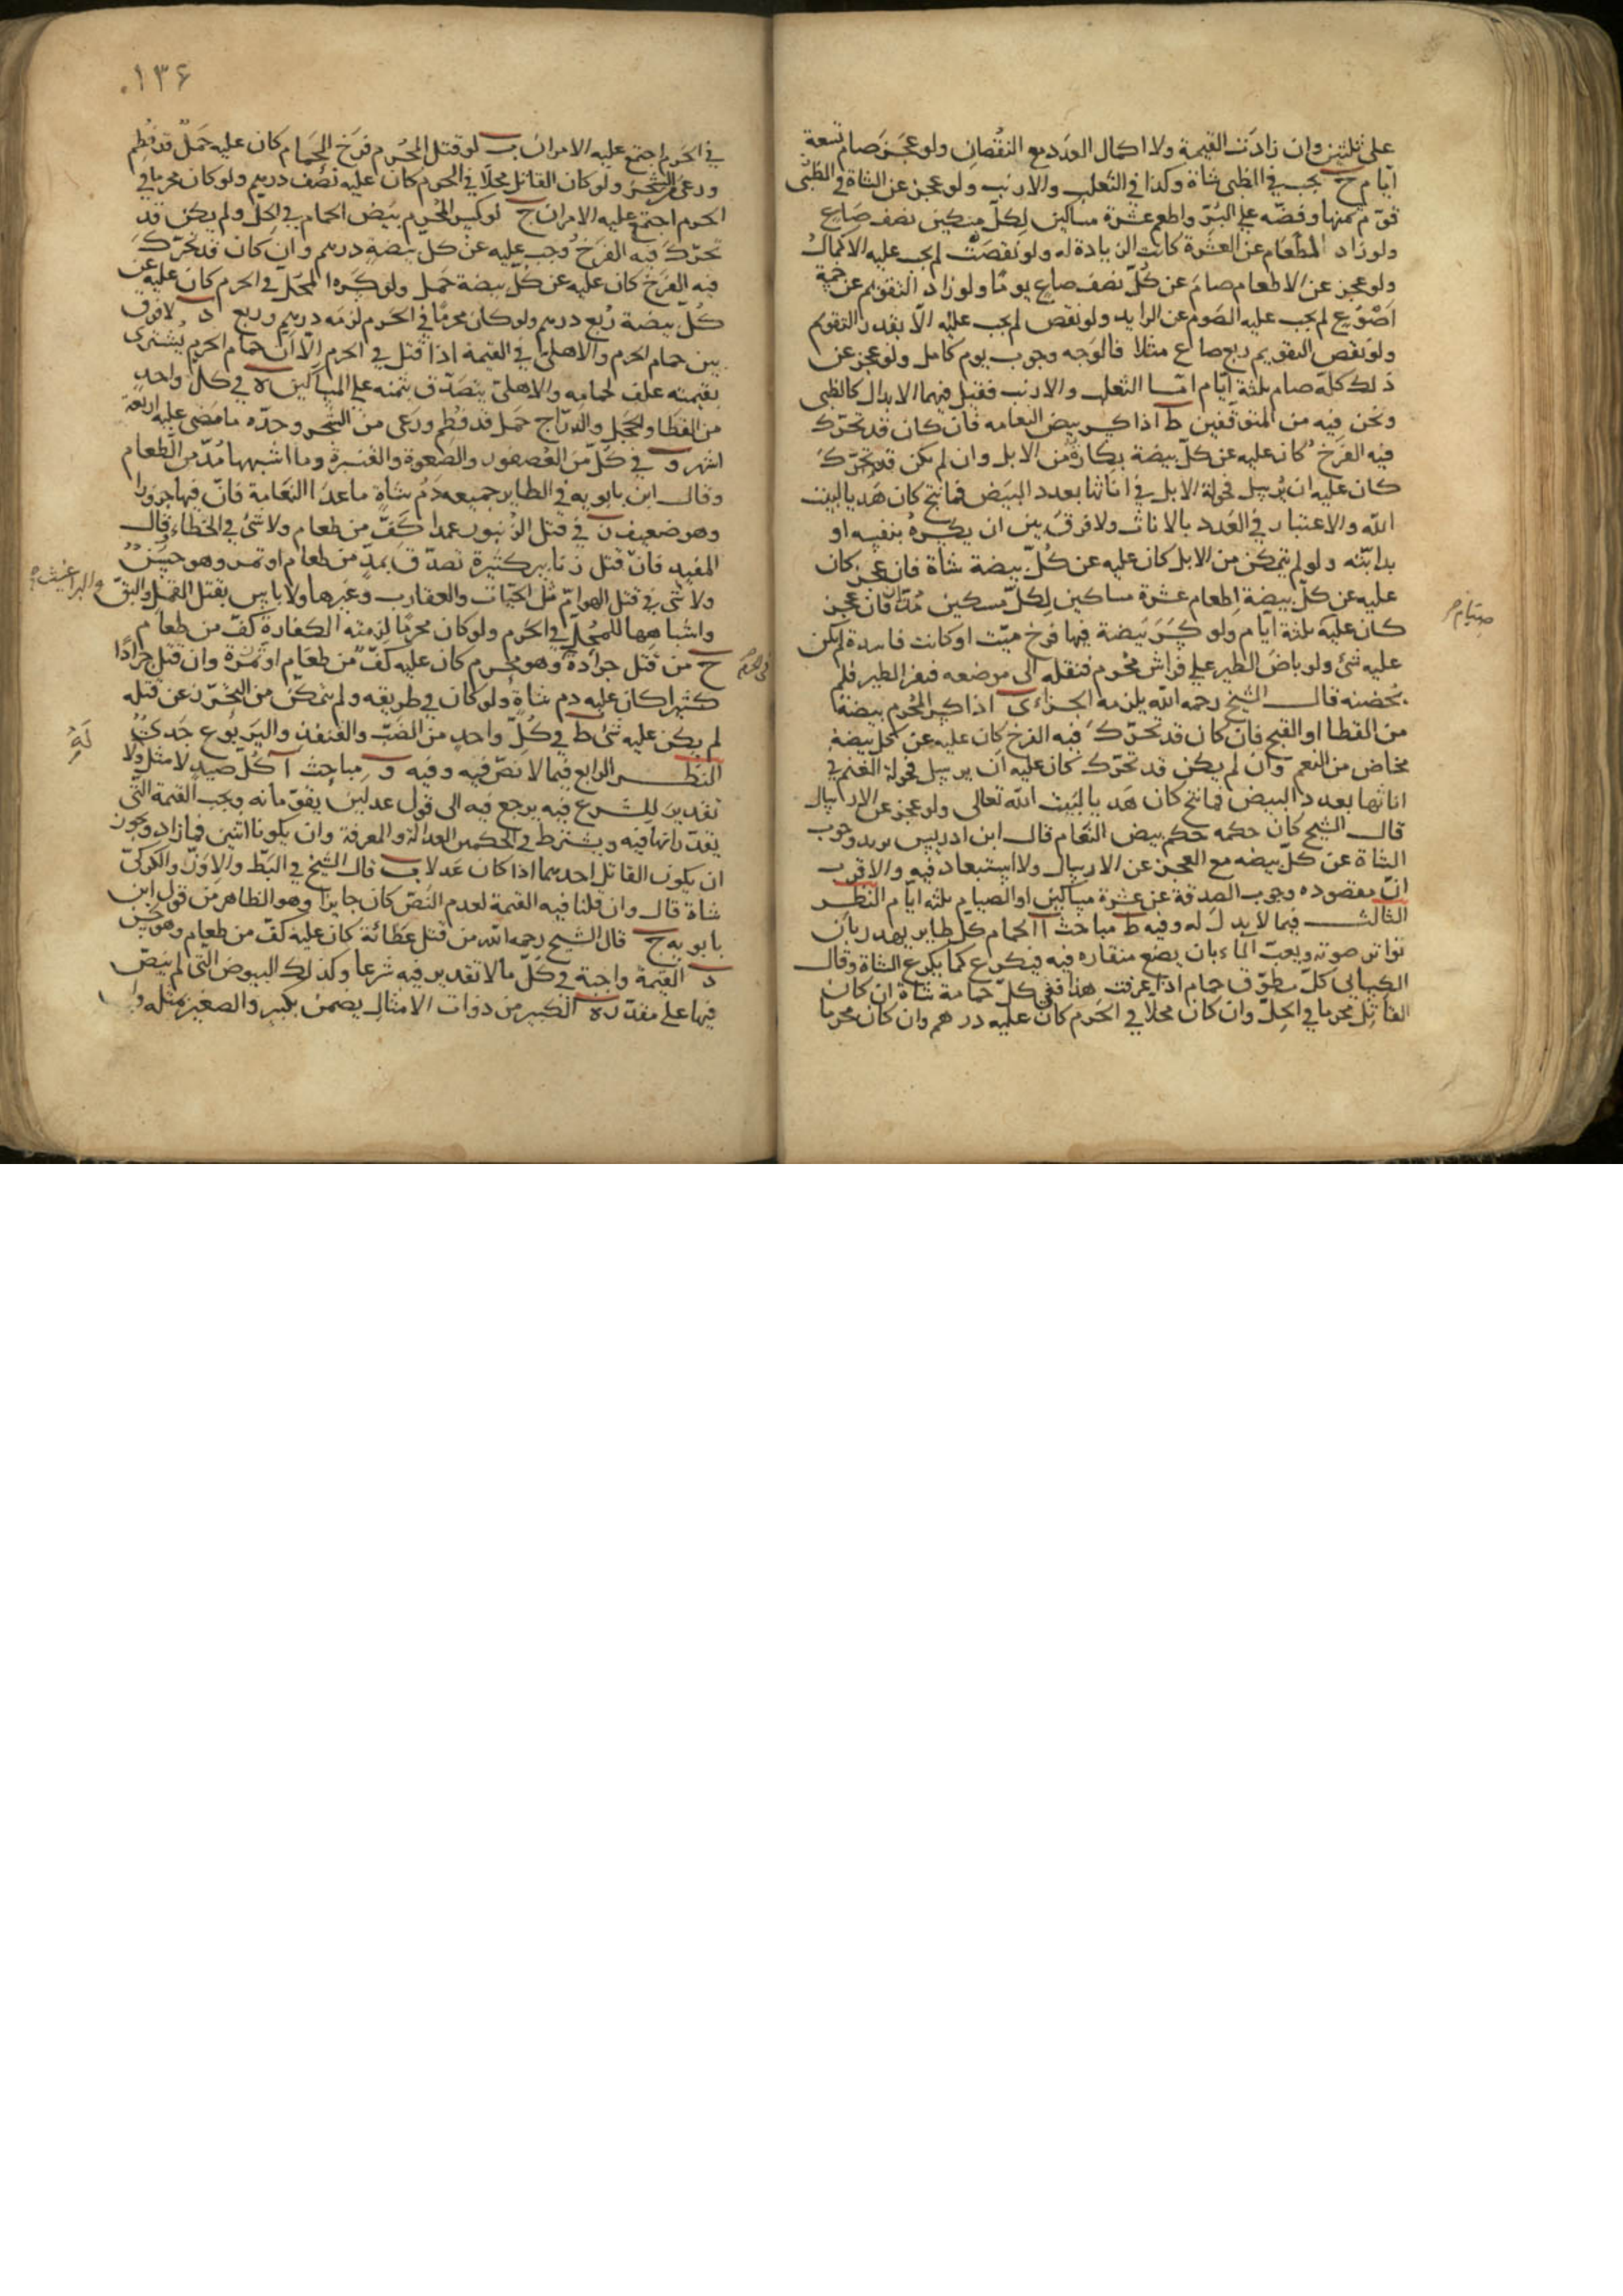 على ثلثين وان زادت القيمة ولا اكمال العدد مع النقصان ولو عجز صام تسعة
ايام ح يجب في الظبى شاة وكذا في الثعلب والارنب ولو عجز عن الشاة في الظبى
قوم ثمنها وفضه على البر واطعم عشرة مساكين لكل مسكين نصف صاع
ولو زاد الطعام عن العشرة كانت الزيادة له ولو نقصت لم يجب عليه الاكمال
ولو عجز عن الاطعام صام عن كل نصف صاع يوما ولو زاد التقويم عن خمسة
اصوع لم يجب عليه الصوم عن الزايد ولو نقص لم يجب عليه الا بقدر التقويم
ولو نقص التقويم ربع صاع مثلا فالوجه وجوب يوم كامل ولو عجز عن
ذلك كله صام ثلثة ايام اما الثعلب والارنب فقيل فيهما الابدال كالظبى
ونحن فيه من المتوقفين ط اذا كسر بيض النعامه فان كان قد تحرك
فيه الفرخ كان عليه عن كل بيضة بكارة من الابل وان لم يكن قد تحرك
كان عليه ان يرسل فحولة الابل في اناثها بعدد البيض فما نتج كان هديا لبيت
الله والاعتبار في العدد بالاناث ولا فرق بين ان يكسره بنفسه او
بدابته ولو لم يتمكن من الابل كان عليه عن كل بيضة شاة فان عجز كان
عليه عن كل بيضة اطعام عشرة مساكين لكل مسكين مد فان عجز
صيام
كان عليه ثلثة ايام ولو كسر بيضة فيها فرخ ميت او كانت فاسدة لم يكن
عليه شئ ولو باض الطير على فراش محرم فنقله الى موضعه فنفر الطير فلم
يحضنه قال الشيخ رحمه الله يلزمه الجزاء ى اذا كسر المحرم بيضة
من القطا او القبج فان كان قد تحرك فيه الفرخ كان عليه عن كل بيضة
مخاض من النعم وان لم يكن قد تحرك كان عليه ان يرسل فحولة الغنم في
اناثها بعدد البيض فما نتج كان هديا لبيت الله تعالى ولو عجز عن الارسال
قال الشيخ كان حكمه حكم بيض النعام قال ابن ادريس يريد وجوب
الشاة عن كل بيضه مع العجز عن الارسال ولا استبعاد فيه والاقرب
ان مقصوده وجوب الصدقة عن عشرة مساكين او الصيام ثلثه ايام النظر
الثالث فيما لا بدل له وفيه ط مباحث ا الحمام كل طاير يهدر بان
تواتر صوته ويعب الماء بان يضع منقاره فيه فيكرع كما يكرع الشاة وقال
الكسائى كل مطوق حمام اذا عرفت هذا ففى كل حمامة شاة ان كان
القاتل محرما في الحل وان كان محلا في الحرم كان عليه درهم وان كان محرما
۱۳۶
في الحرم اجتمع عليه الامران ب لو قتل المحرم فرخ الحمام كان عليه حمل قد فطم
ورعى الشجر ولو كان القاتل محلا في الحرم كان عليه نصف درهم ولو كان محرما في
الحرم اجتمع عليه الامران ج لو كسر المحرم بيض الحمام في الحل ولم يكن قد
تحرك فيه الفرخ وجب عليه عن كل بيضة درهم وان كان قد تحرك
فيه الفرخ كان عليه عن كل بيضة حمل ولو كسره المحل في الحرم كان عليه عن
كل بيضة ربع درهم ولو كان محرما في الحرم لزمه درهم وربع د لا فرق
بين حمام الحرم والاهلى في القيمة اذا قتل في الحرم الا ان حمام الحرم يشترى
بقيمته علف لحمامه والاهلى يتصدق بثمنه على المساكين ه في كل واحد
من القطا والحجل والدراج حمل قد فطم ورعى من الشجر وحده ما مضى عليه اربعة
اشهر و في كل من العصفور والصعوة والقنبرة وما اشبهها مد من الطعام
وقال ابن بابويه في الطاير جميعه دم شاة ما عدا النعامة فان فيها جزورا
وهو ضعيف ز في قتل الزنبور عمدا كف من طعام ولا شئ في الخطاء وقال
المفيد فان قتل زنابير كثيرة تصدق بمد من طعام او تمر وهو حسن
ولا شئ في قتل الهوام مثل الحيات والعقارب وغيرها ولا باس بقتل القمل والبق
والبراغيث
واشباهها للمحل في الحرم ولو كان محرما لزمته الكفارة كف من طعام
ح من قتل جرادة وهو محرم كان عليه كف من طعام او تمرة وان قتل جرادا
كثيرا كان عليه دم شاة ولو كان في طريقه ولم يتمكن من التحرز عن قتله
لم يكن عليه شئ ط في كل واحد من الضب والقنفذ واليربوع جدى
النظر الرابع فيما لا نص فيه وفيه و مباحث ا كل صيد لا مثل له ولا
تقدير للشرع فيه يرجع فيه الى قول عدلين يقومانه ويجب القيمة التى
يقدرانها فيه ويشترط في الحكمين العدالة والمعرفة وان يكونا اثنين فما زاد ويجوز
ان يكون القاتل احدهما اذا كان عدلا ب قال الشيخ في البط والاوز والكركى
شاة قال وان قلنا فيه القيمة لعدم النص كان جايزا وهو الظاهر من قول ابن
بابويه ج قال الشيخ رحمه الله من قتل عظائة كان عليه كف من طعام وهو حسن
د القيمة واجبة في كل ما لا تقدير فيه شرعا وكذلك البيوض التى لم ينص
فيها على مقدر ه الكبير من ذوات الامثال يضمن بكبير والصغير بمثله